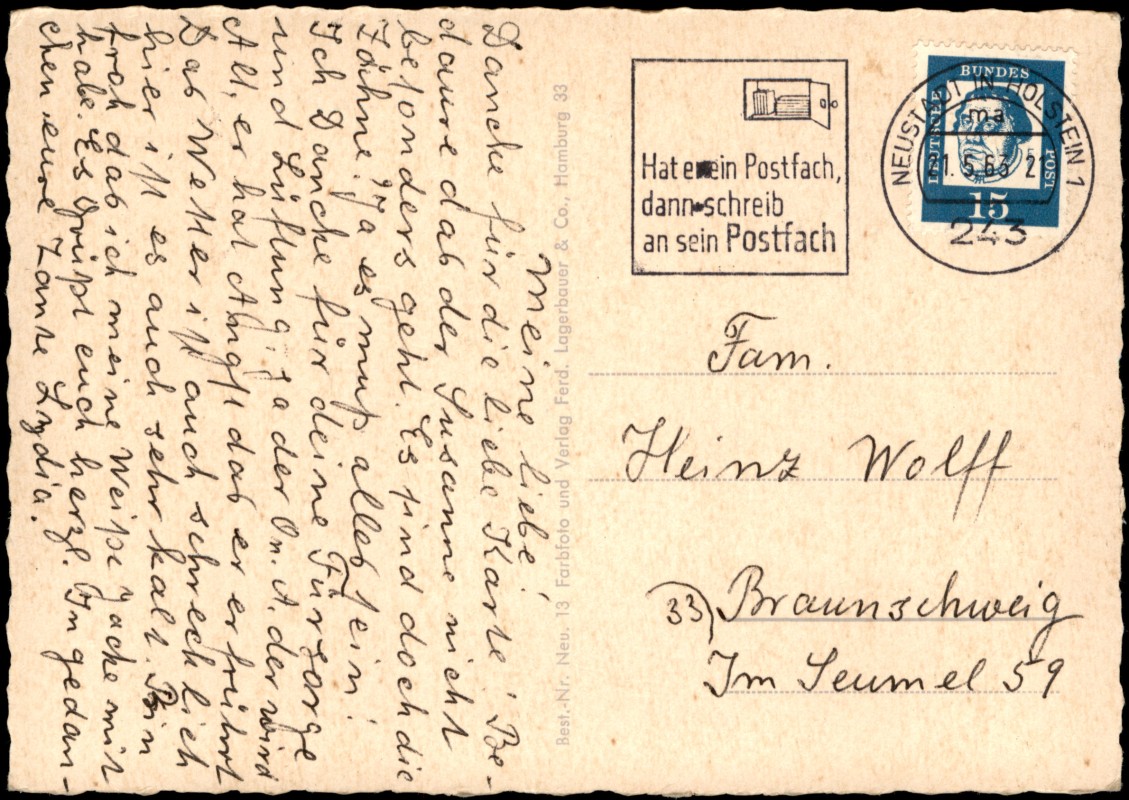 Meine liebe!
Dancke für die liebe Karte! Be-
daure das der Susanne nicht
besonders geht. Es sind doch die
Zähne. Ja es muß alles sein!
Ich Dancke für deine Fürsorge
und Lüftung, ja der On. A. der wird
Alt, er hat Angst das er erfriehrt
Das Wetter ist auch schrecklich
hier ist es auch sehr kalt. Bin
froh das ich meine Weiße Jacke mit
habe. Es grüßt euch herzl. In gedan-
chen eure Tante Lydia.
Best.-Nr. Neu. 13 Farbfoto und Verlag Ferd. Lagerbauer & Co., Hamburg 33
Hat er ein Postfach,
dann schreib
an sein Postfach
NEUSTADT IN HOLSTEIN 1
ma
21.5.63 21
243
DEUTSCHE BUNDESPOST
15
Fam.
Heinz Wolff
33) Braunschweig
Im Seumel 59